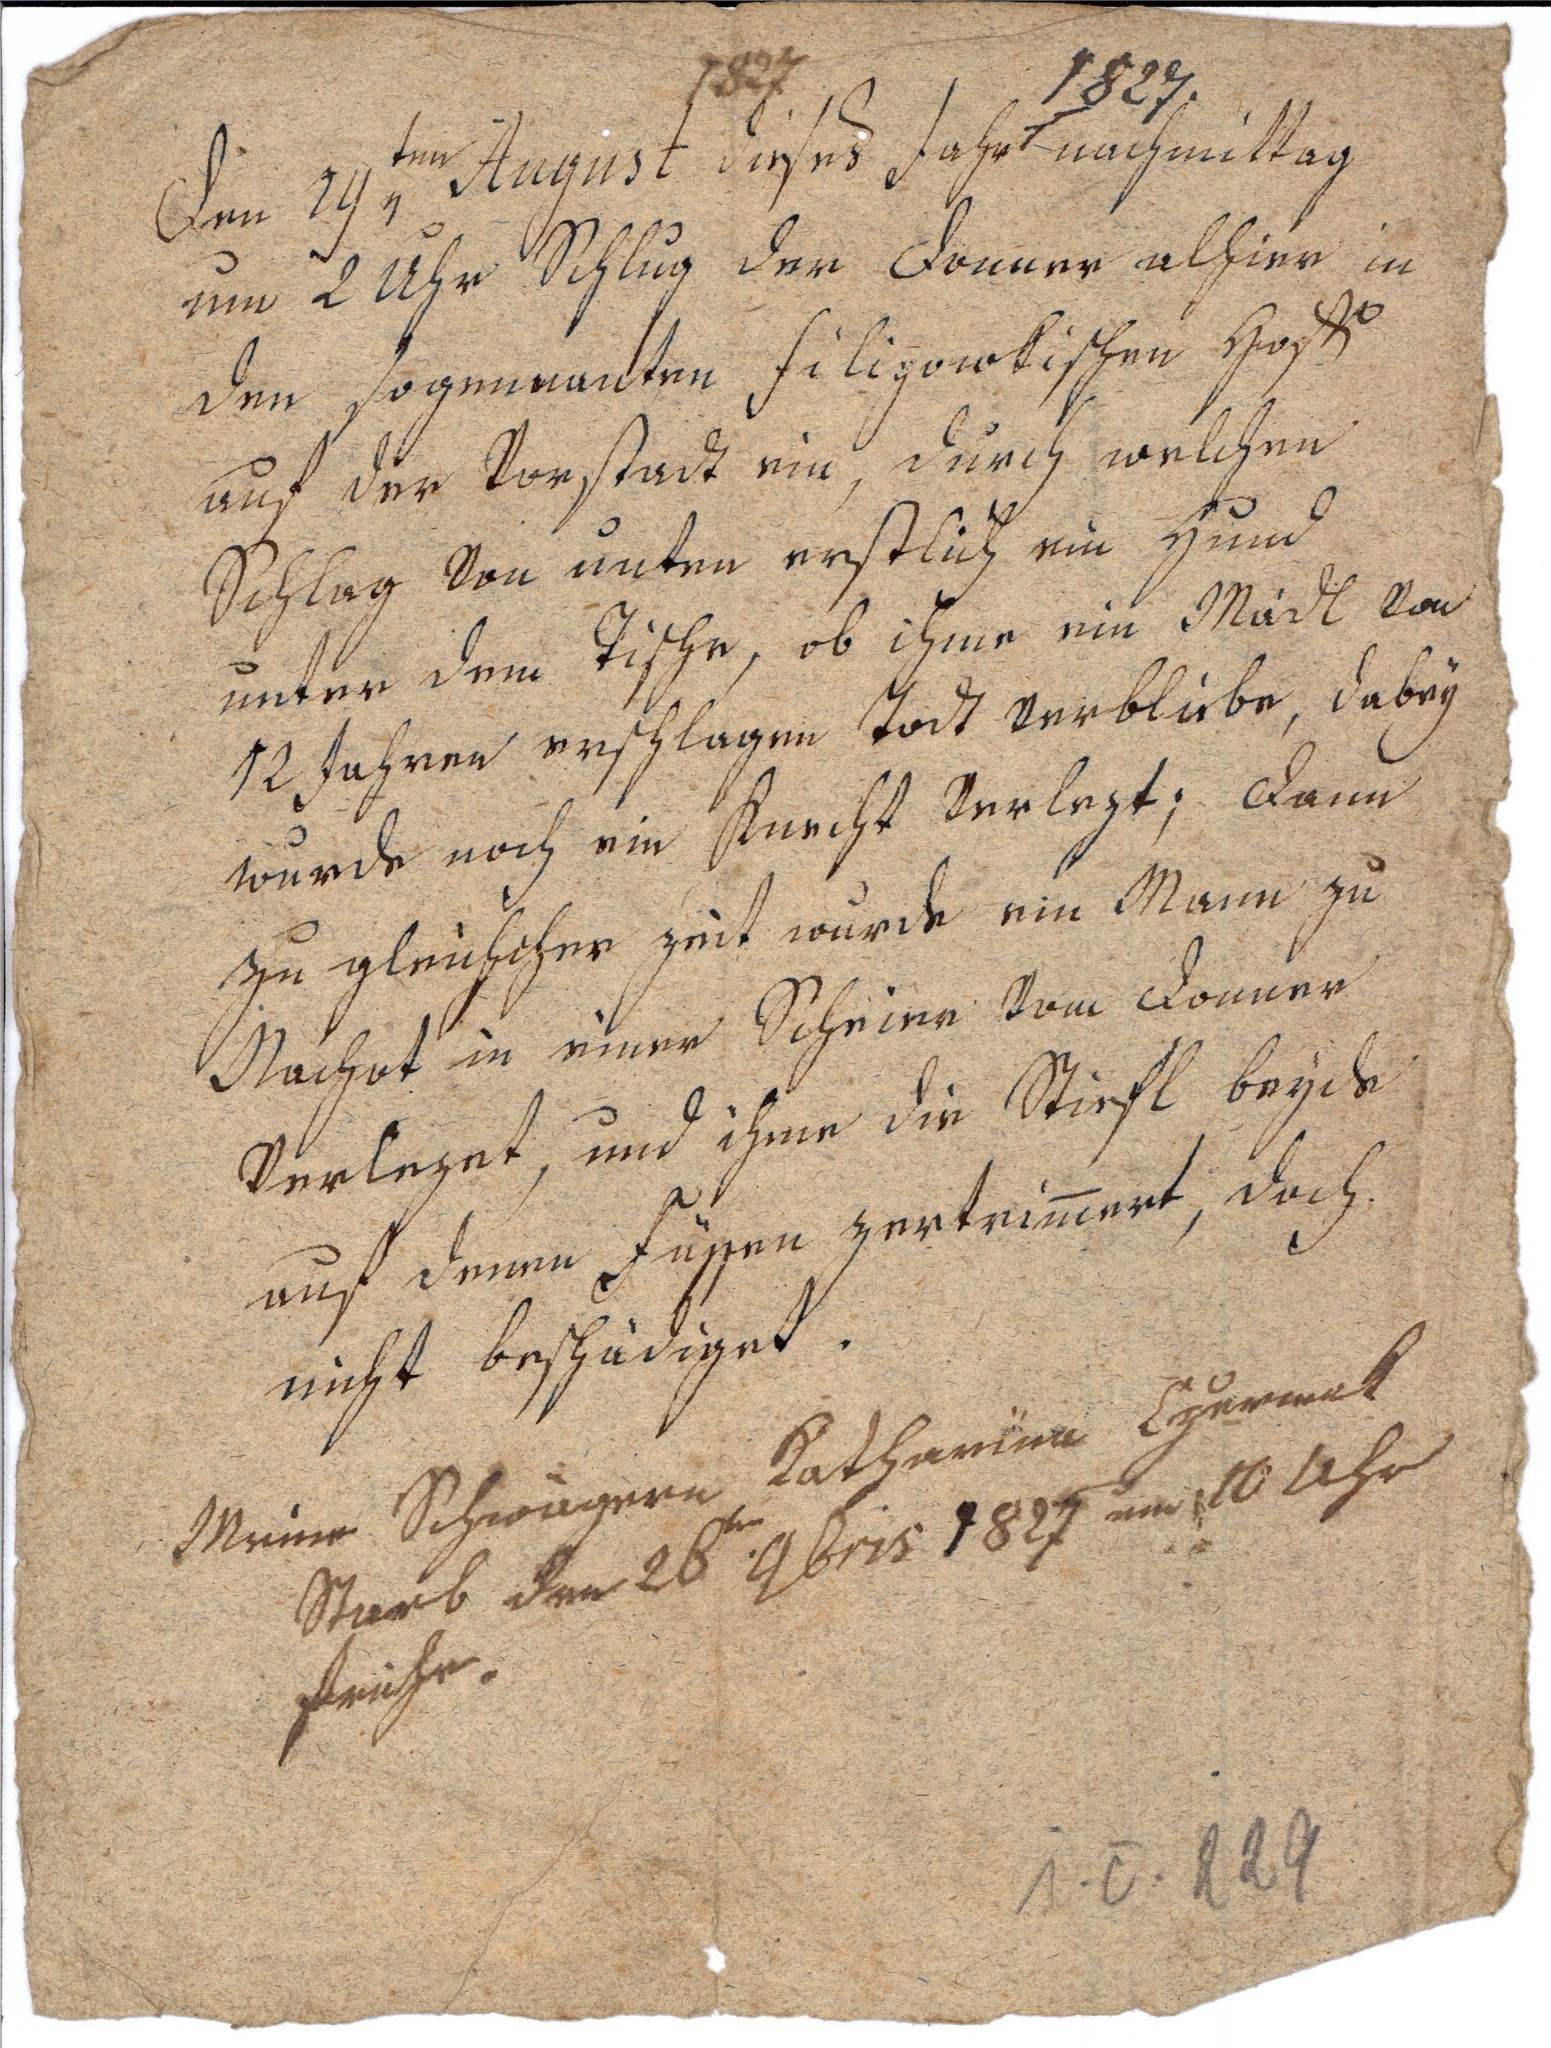 1827
1827.
Den 19ten August dieses Jahr nachmittag
um 2 Uhr Schlug der Donner alhier in
den sogenannten Filizowkischen Hoff
auf der Vorstadt ein, durch welchen
Schlag von unten erstlich ein Hund
unter dem Tische, ob ihme ein Mädl von
12 Jahren erschlagen todt verbliebe, dabey
wurde noch ein Knecht verlezt; Dann
zu gleicher zeit wurde ein Mann zu
Nachot in einer Scheier vom Donner
verlezet, und ihme die Stiefl beyde
auf denen Füssen zertrim̄ert, doch
nicht beschädiget.
Meine Schwägern Katharina Czermak
Starb den 26ten 9bris 1827 um 10 Uhr
fruhe.
229